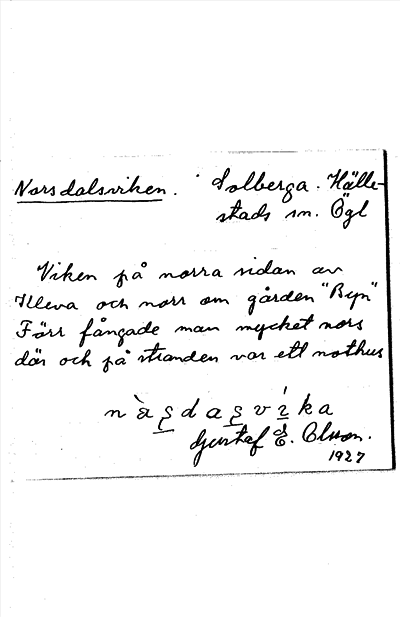 Norsdalsviken. Solberga. Hälle-
stads sn. Ögl
Viken på norra sidan av
och norr om gården "Byn"
Förr fångade man mycket nors
där och på stranden var ett nothus
Gustaf E. Olsson.
1927